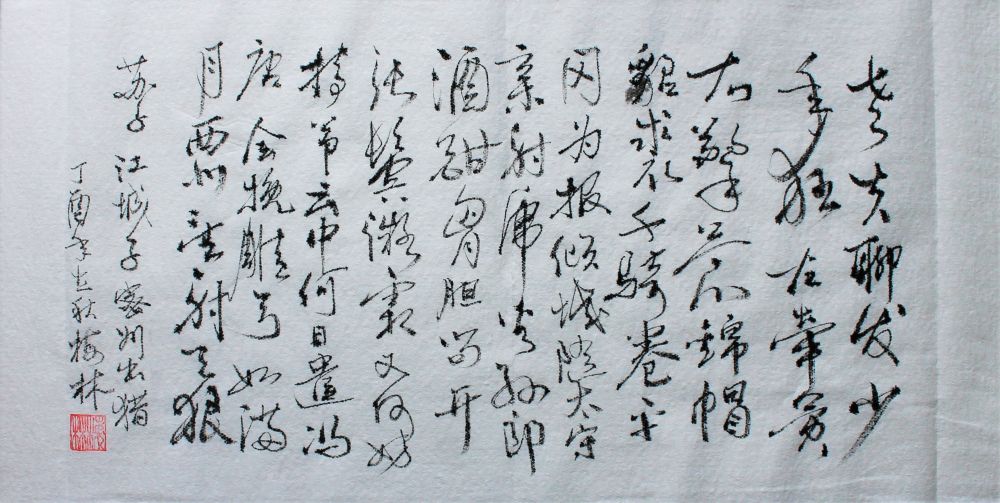 老夫聊发少
年狂左牵黄
右擎苍锦帽
貂裘千骑卷平
冈为报倾城随太守
亲射虎看孙郎
酒酣胸胆尚开
张鬓微霜又何妨
持节云中何日遣冯
唐会挽雕弓如满
月西北望射天狼
苏子江城子密州出猎
丁酉年立秋梅林